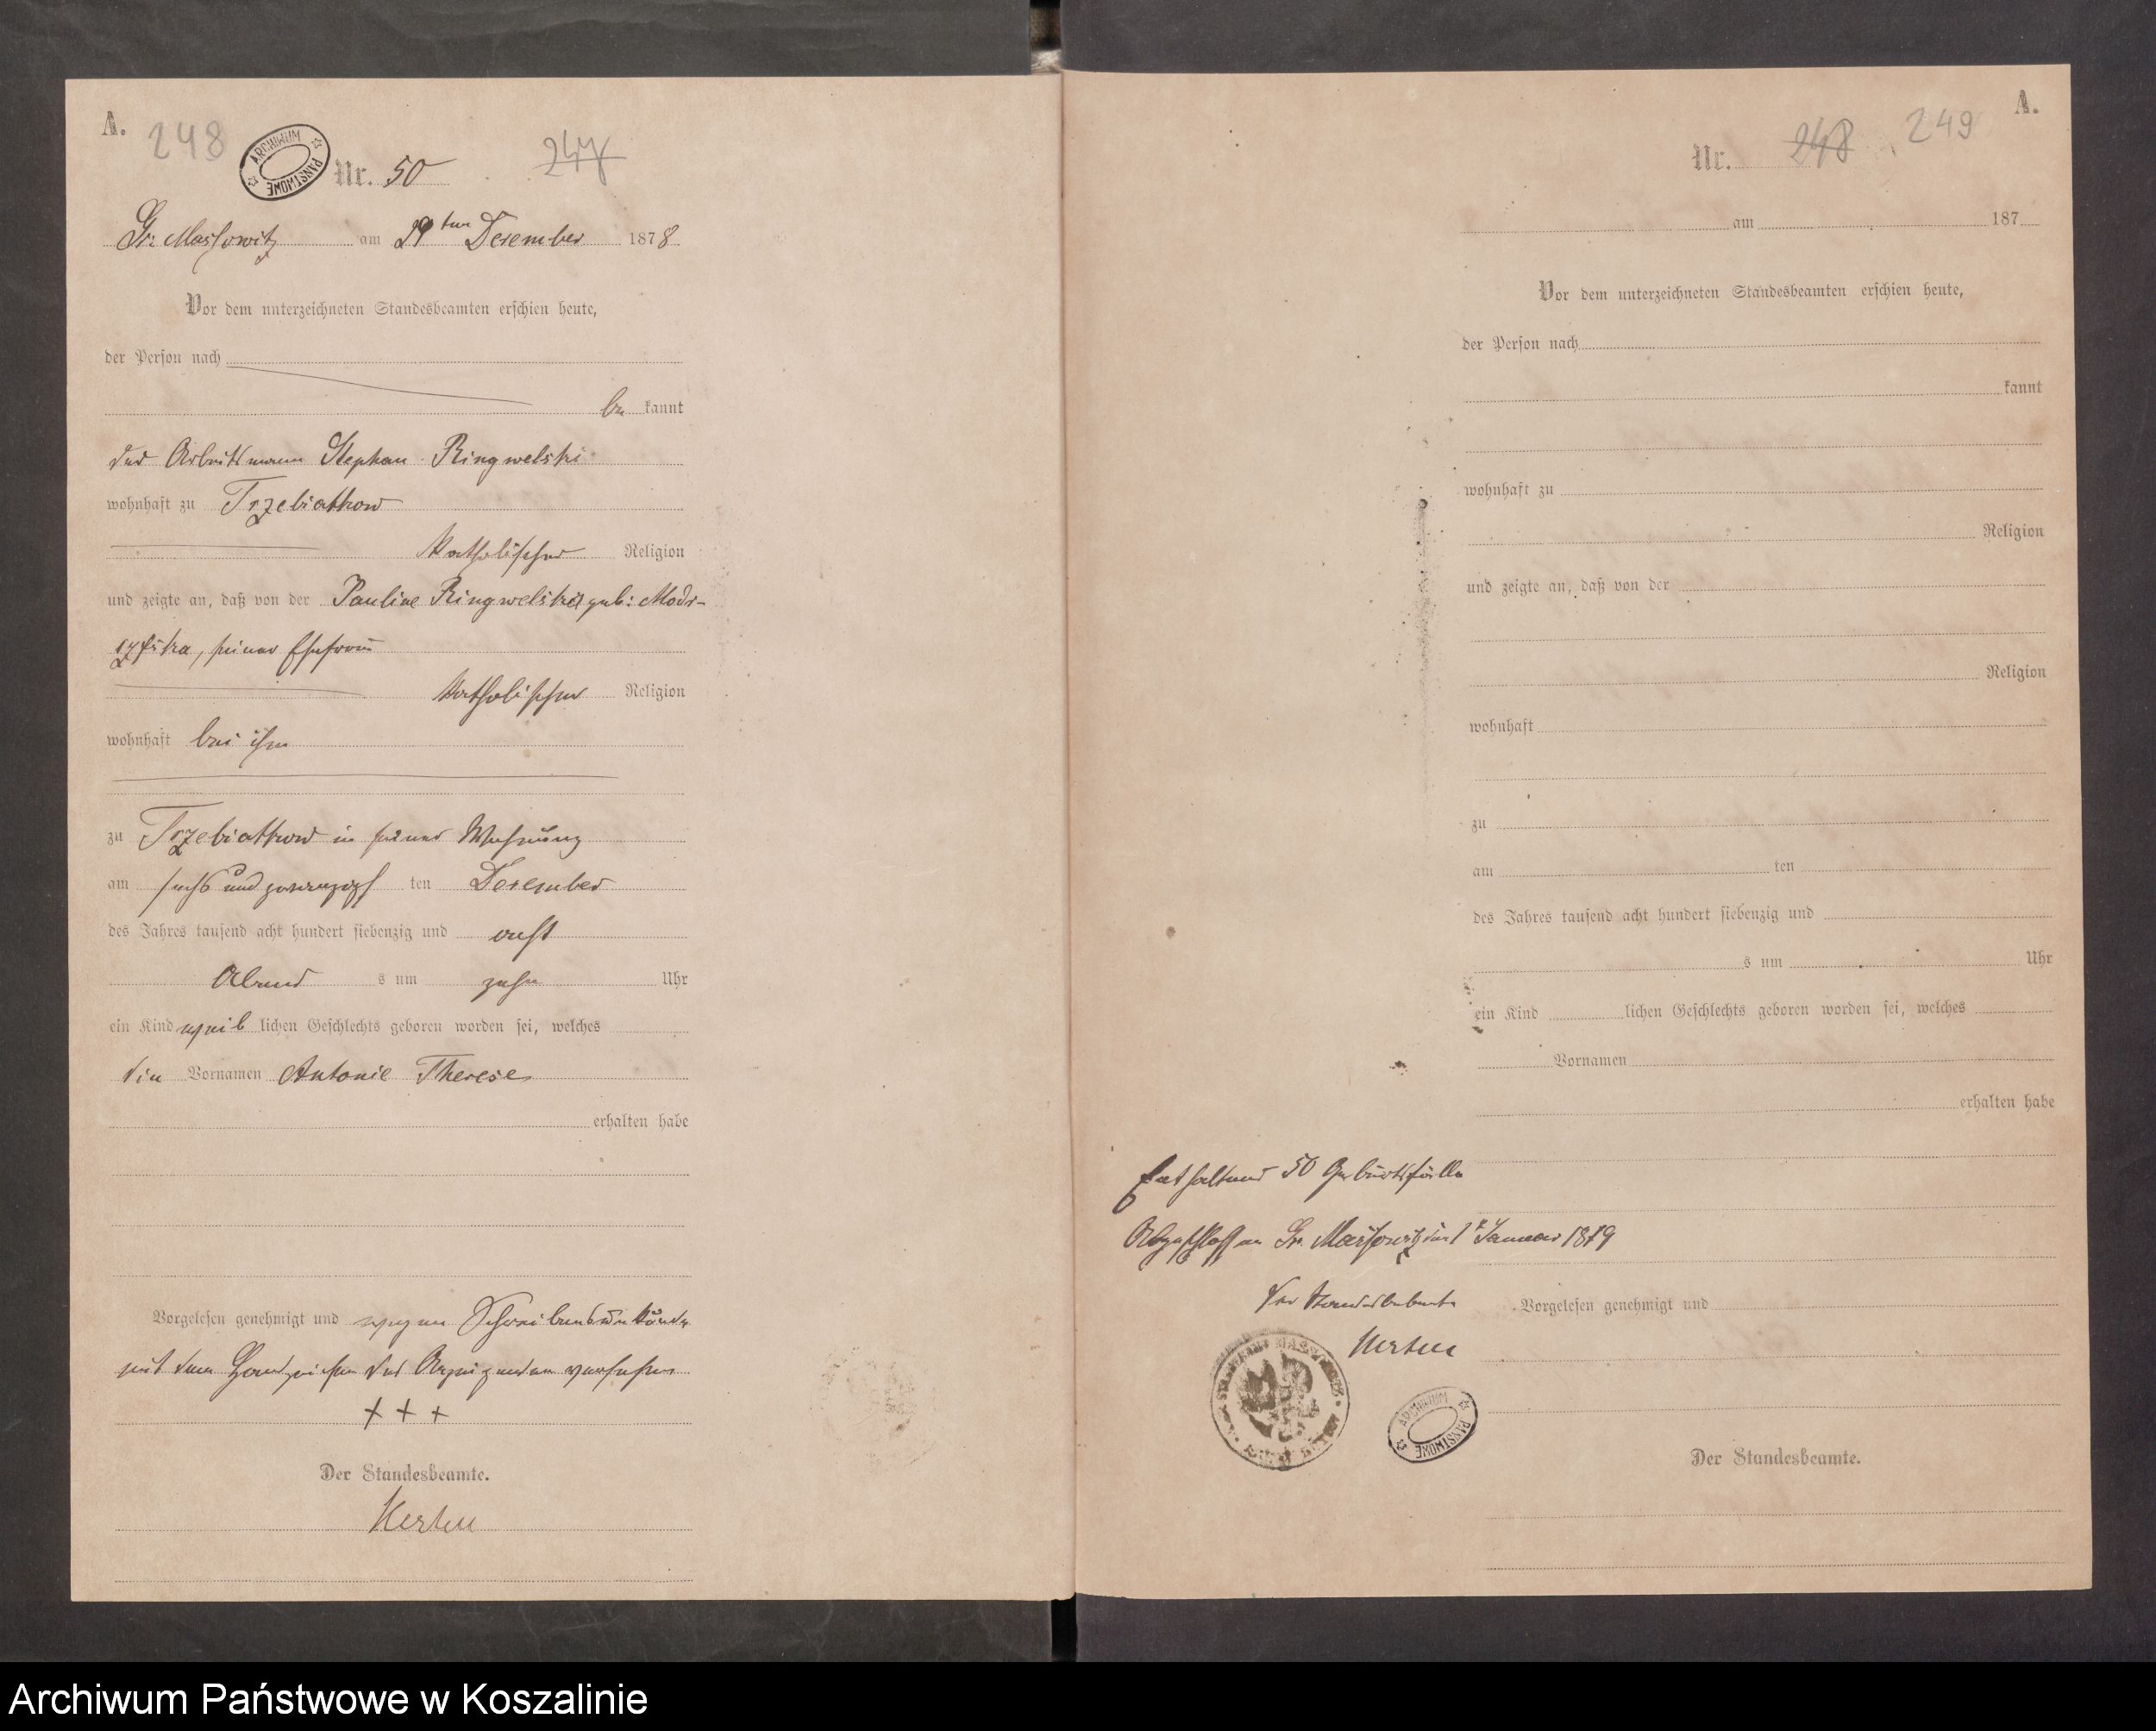 A. 248
ARCHIWUM PAŃSTWOWE
Nr. 50 247
Gr: Massowitz am 29ten Dezember 1878
Vor dem unterzeichneten Standesbeamten erschien heute,
der Person nach
be kannt
der Arbeitsmann Stephan Ringwelski
wohnhaft zu Trzebiatkow
katholischer Religion
und zeigte an, daß von der Pauline Ringwelska geb: Modr-
zyska, seiner Ehefrau
katholischer Religion
wohnhaft bei ihm
zu Trzebiatkow in seiner Wohnung
am sechs und zwanzigs ten Dezember
des Jahres tausend acht hundert siebenzig und acht
Abend s um zehn Uhr
ein Kind weib lichen Geschlechts geboren worden sei, welches
die Vornamen Antonie Therese
erhalten habe
Vorgelesen genehmigt und wegen Schreibensunkunde
mit dem Handzeichen des Anzeigenden versehen
+ + +
Der Standesbeamte.
Kersten
A.
Nr. 248 249
am 187
Vor dem unterzeichneten Standesbeamten erschien heute,
der Person nach
kannt
wohnhaft zu
Religion
und zeigte an, daß von der
Religion
wohnhaft
zu
am ten
des Jahres tausend acht hundert siebenzig und
s um Uhr
ein Kind lichen Geschlechts geboren worden sei, welches
Vornamen
erhalten habe
Enthaltend 50 Geburtsfälle
Abgeschlossen Gr. Massowitz den 1t Januar 1879
Der Standesbeamte
Kersten
Vorgelesen genehmigt und
ARCHIWUM PAŃSTWOWE
Der Standesbeamte.
Archiwum Państwowe w Koszalinie